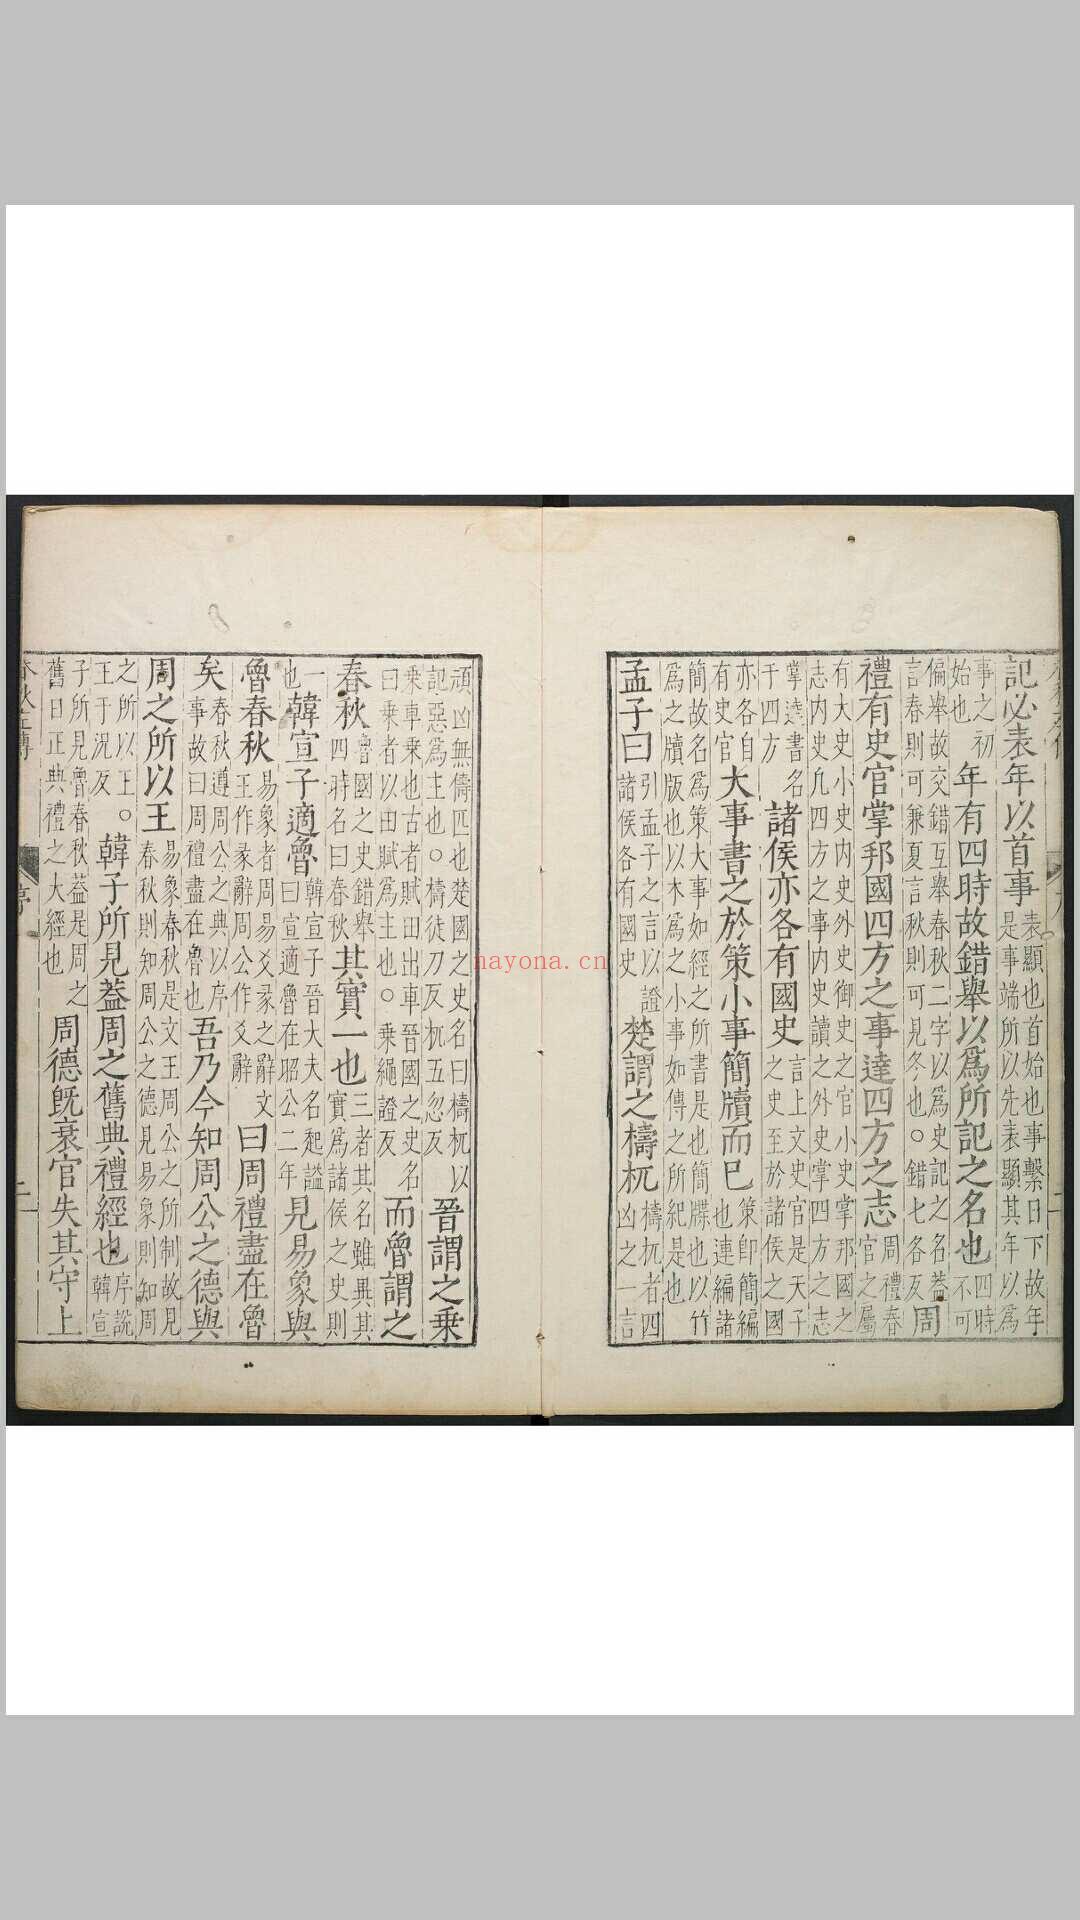 記必表年以首事表顯也首始也事繫日下故年
是事端所以先表顯其年以為
事之初
始也年有四時故錯舉以為所記之名也四時
不可
偏舉故交錯互舉春秋二字以為史記之名葢
言春則可兼夏言秋則可見冬也○錯七各反周
禮有史官掌邦國四方之事達四方之志周禮春
官之屬
有大史小史內史外史御史之官小史掌邦國之
志內史凡四方之事內史讀之外史掌四方之志
掌達書名
于四方諸侯亦各有國史言上文史官是天子
之史至於諸侯之國
亦各自
有史官大事書之於策小事簡牘而已策即簡編
也連編諸
簡故名為策大事如經之所書是也簡牒也以竹
為之牘版也以木為之小事如傳之所紀是也
孟子曰引孟子之言以證
諸侯各有國史楚謂之檮杌檮杌者四
凶之一言
頑凶無儔匹也楚國之史名曰檮杌以
記惡為主也○檮徒刀反杌五忽反晉謂之乗
乗車乗也古者賦田出車晉國之史名
曰乗者以田賦為主也○乗繩證反而魯謂之
春秋魯國之史錯舉
四時名曰春秋其實一也三者其名雖異其
實為諸侯之史則
一
也韓宣子適魯韓宣子晉大夫名起謚
曰宣適魯在昭公二年見易象與
魯春秋易象者周易爻彖之辭文
王作彖辭周公作爻辭曰周禮盡在魯
矣春秋遵周公之典以序
事故曰周禮盡在魯也吾乃今知周公之德與
周之所以王易象春秋是文王周公之所制故見
春秋則知周公之德見易象則知周
之所以王。
王于況反韓子所見葢周之舊典禮經也序說
韓宣
子所見魯春秋葢是周之
舊日正典禮之大經也周德旣衰官失其守上
春秋左傳
序
二